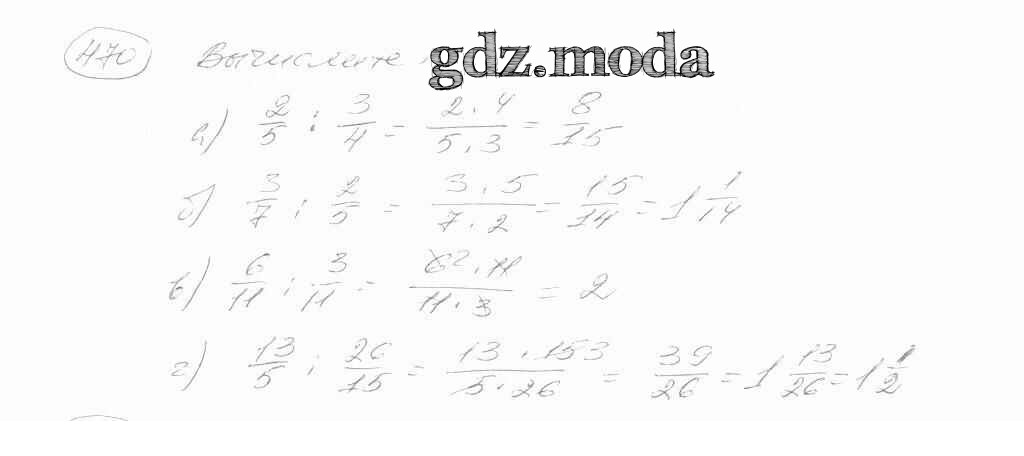 470 Вычислите gdz.moda
а) 2/5 : 3/4 = 2·4/5·3 = 8/15
б) 3/7 : 2/5 = 3·5/7·2 = 15/14 = 1 1/14
в) 6/11 : 3/11 = 6 2·11/11·3 = 2
г) 13/5 : 26/15 = 13·15 3/5·26 = 39/26 = 1 13/26 = 1 1/2